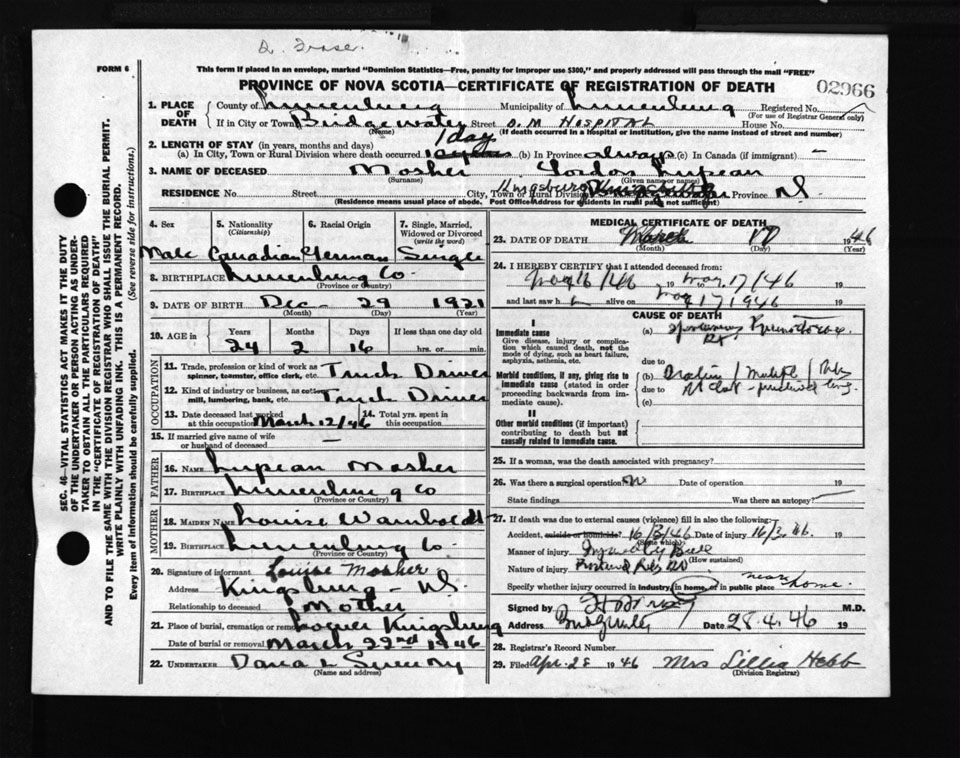 FORM 6
This form if placed in an envelope, marked "Dominion Statistics—Free, penalty for improper use $300," and properly addressed will pass through the mail "FREE"
PROVINCE OF NOVA SCOTIA—CERTIFICATE OF REGISTRATION OF DEATH
02966
1. PLACE OF DEATH
County of Lunenburg Municipality of Lunenburg Registered No.
(For use of Registrar General only)
If in City or Town Bridgewater Street D. M. HOSPITAL House No.
(Name) (If death occurred in a Hospital or institution, give the name instead of street and number)
2. LENGTH OF STAY (in years, months and days) 1 day
(a) In City, Town or Rural Division where death occurred (b) In Province always (c) In Canada (if immigrant) —
3. NAME OF DECEASED Mosher Gordon Lupean
(Surname) (Given name or names)
RESIDENCE No. Street City, Town or Rural Division Kingsburg Province NS
(Residence means usual place of abode. Post Office Address for residents in rural parts not sufficient)
4. Sex
5. Nationality (Citizenship)
6. Racial Origin
7. Single, Married, Widowed or Divorced (write the word)
Male Canadian German Single
8. BIRTHPLACE Lunenburg Co
(Province or Country)
9. DATE OF BIRTH Dec — 29 1921
(Month) (Day) (Year)
10. AGE in Years Months Days If less than one day old
24 2 16 hrs. or min.
OCCUPATION
11. Trade, profession or kind of work as spinner, teamster, office clerk, etc. Truck Driver
12. Kind of industry or business, as cotton mill, lumbering, bank, etc. Truck Driver
13. Date deceased last worked at this occupation March 12/46
14. Total yrs. spent in this occupation
15. If married give name of wife or husband of deceased —
FATHER
16. NAME Lupean Mosher
17. BIRTHPLACE Lunenburg Co
(Province or Country)
MOTHER
18. MAIDEN NAME Louise Wamboldt
19. BIRTHPLACE Lunenburg Co
(Province or Country)
20. Signature of informant Louise Mosher
Address Kingsburg — NS
Relationship to deceased Mother
21. Place of burial, cremation or removal Kingsburg
Date of burial or removal March 22nd 1946
22. UNDERTAKER Dana L Sweeny
(Name and address)
MEDICAL CERTIFICATE OF DEATH
23. DATE OF DEATH March 17 1946
(Month) (Day) (Year)
24. I HEREBY CERTIFY that I attended deceased from:
16/46 to 17/46 19
and last saw h alive on 17 1946 19
CAUSE OF DEATH
I
Immediate cause
Give disease, injury or complication which caused death, not the mode of dying, such as heart failure, asphyxia, asthenia, etc.
(a)
due to
Morbid conditions, if any, giving rise to immediate cause (stated in order proceeding backwards from immediate cause).
(b)
due to
(c)
II
Other morbid conditions (if important) contributing to death but not causally related to immediate cause.
25. If a woman, was the death associated with pregnancy?
26. Was there a surgical operation? Date of operation 19
State findings Was there an autopsy?
27. If death was due to external causes (violence) fill in also the following:
Accident, suicide or homicide? 16/3/46 Date of injury 16/3 46.
(State which)
Manner of injury Injured by
(How sustained)
Nature of injury Ribs
Specify whether injury occurred in industry, in home, or in public place near home.
Signed by M.D.
Address Bridgewater Date 28.4.46 19
28. Registrar's Record Number
29. Filed Apr. 28 1946 Mrs Lillia Hebb
(Division Registrar)
SEC. 46—VITAL STATISTICS ACT MAKES IT THE DUTY
OF THE UNDERTAKER OR PERSON ACTING AS UNDER-
TAKER TO OBTAIN ALL THE PARTICULARS REQUIRED
IN THE "CERTIFICATE OF REGISTRATION OF DEATH"
AND TO FILE THE SAME WITH THE DIVISION REGISTRAR WHO SHALL ISSUE THE BURIAL PERMIT.
WRITE PLAINLY WITH UNFADING INK. THIS IS A PERMANENT RECORD.
Every item of information should be carefully supplied. (See reverse side for instructions.)